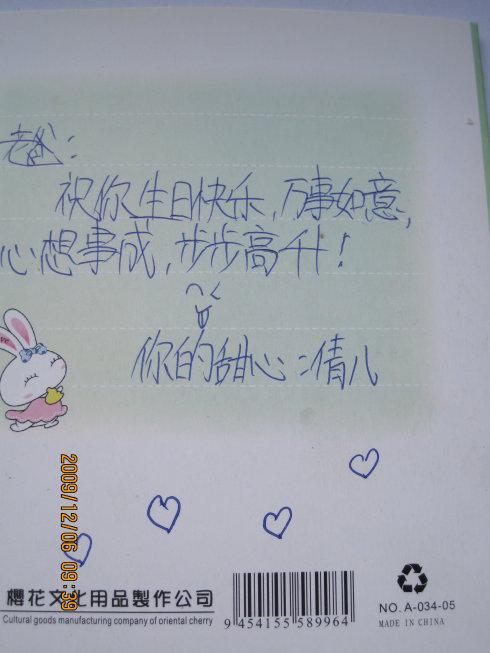 老
祝你生日快乐,万事如意,
心想事成,步步高升!
你的甜心:倩儿
2009/12/06 09:39
櫻花文化用品製作公司
Cultural goods manufacturing company of oriental cherry
9 454155 589964
NO. A-034-05
MADE IN CHINA